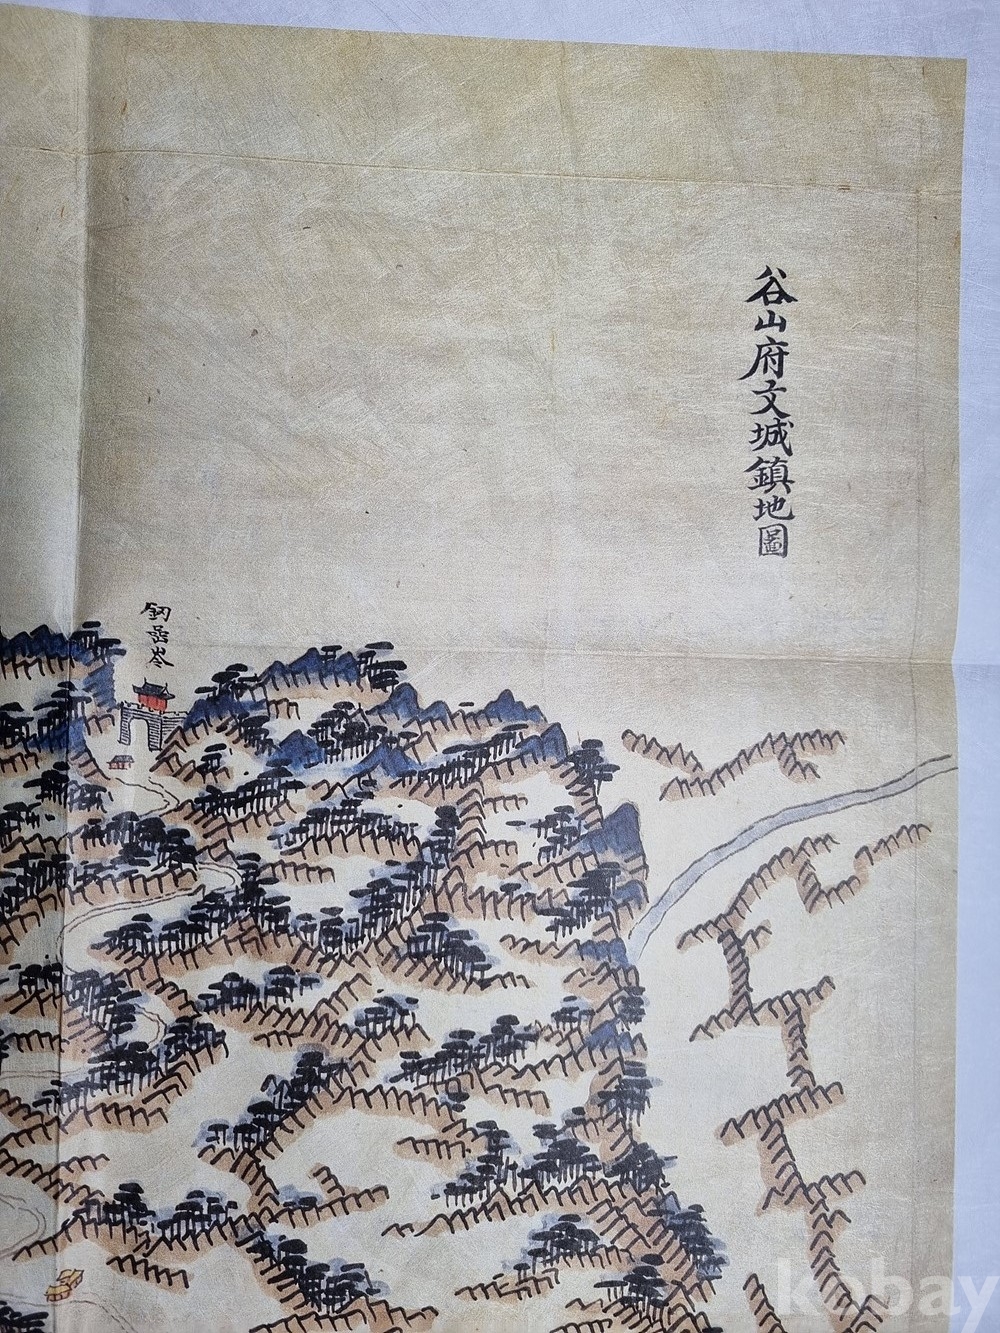 谷山府文城鎮地圖
kobay